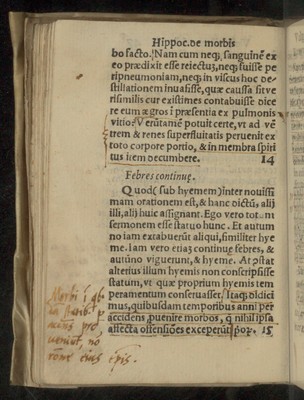 Hippoc. de morbis
bo facto. Nam cum neq; sanguinē ex
eo prædixit esse reiectū, neq; fuisse pe
ripneumoniam, neq; in viscus hoc de-
stillationem inuasisse, quæ caussa sit ve
risimilis cur existimes contabuisse dice
re eum ægros i præsentia ex pulmonis
vitio? Verūtamē potuit certe, vt ad vē
trem & renes superfluitatis peruenit ex
toto corpore portio, & in membra spiri
tus item decumbere. 14
Febres continuę.
Quod (sub hyemem) inter nouissi
mam orationem est, & hanc dictū, alij
illi, alij huic assignant. Ego vero totum
sermonem esse statuo hunc. Et autum
no iam extabuerūt aliqui, similiter hye
me. Iam vero etiā continuę febres, &
autūno viguerunt, & hyeme. At pstat
alterius illum hyemis non conscripsisse
statum, vt quæ proprium hyemis tem
peramentum conseruasset. Itaq; didici
mus, quibusdam temporibus anni per
accidens puenire morbos, q nihil ipsa
affecta offensiões exceperūt 15
Morbi